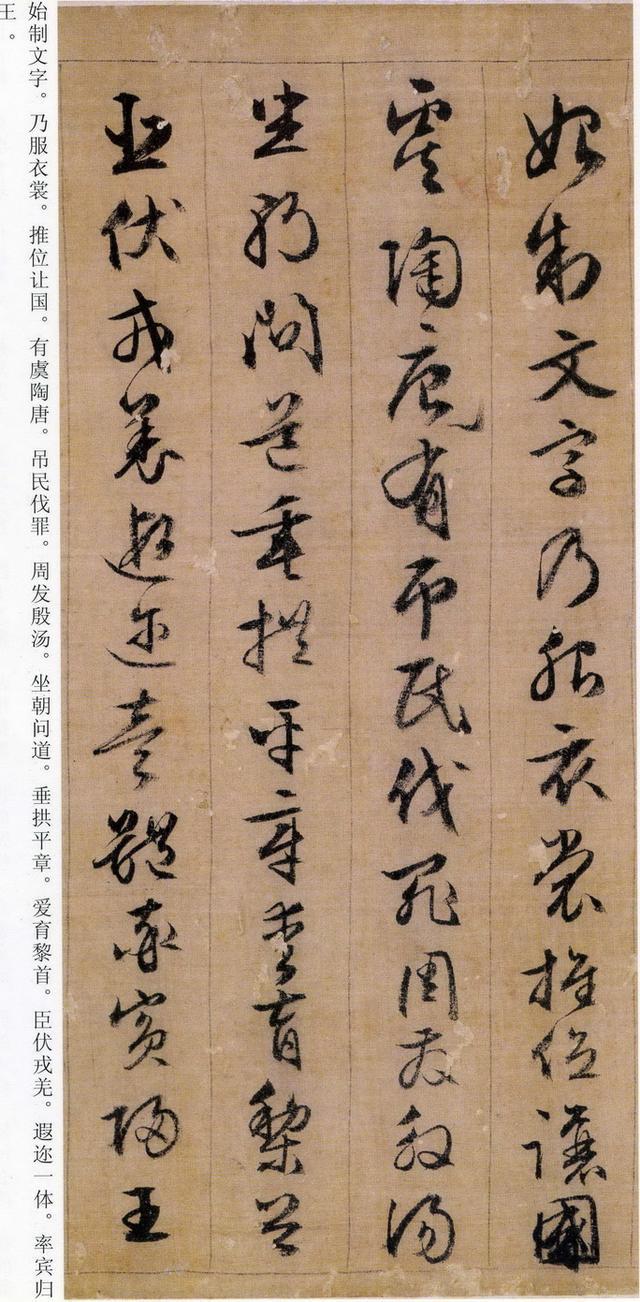 始制文字乃服衣裳推位讓國
虞陶唐有吊民伐罪周發殷湯
坐朝問道垂拱平章愛育黎首
臣伏戎羌遐邇壹體率賓歸王
始制文字。乃服衣裳。推位让国。有虞陶唐。吊民伐罪。周发殷汤。坐朝问道。垂拱平章。爱育黎首。臣伏戎羌。遐迩一体。率宾归
王。